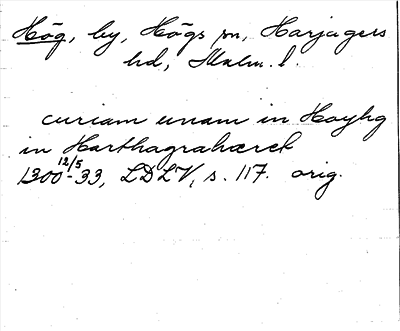 Hög, by, Högs sn, Harjagers
hd, Malm. l.
curiam unam in Hoyhg
in Harthagrahæret
12/5
1300-33, LDLV, s. 117. orig.